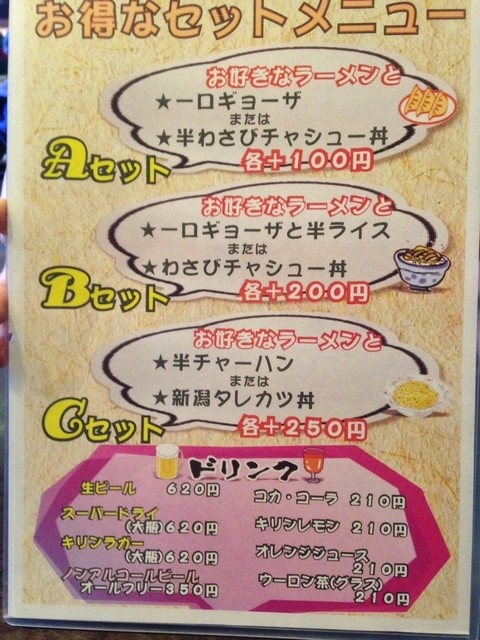 お得なセットメニュー
お好きなラーメンと
★一口ギョーザ
または
★半わさびチャシュー丼
Aセット
各+100円
お好きなラーメンと
★一口ギョーザと半ライス
または
★わさびチャシュー丼
Bセット
各+200円
お好きなラーメンと
★半チャーハン
または
★新潟タレカツ丼
Cセット
各+250円
ドリンク
生ビール 620円
スーパードライ
(大瓶)620円
キリンラガー
(大瓶)620円
ノンアルコールビール
オールフリー350円
コカ・コーラ 210円
キリンレモン 210円
オレンジジュース
210円
ウーロン茶(グラス)
210円